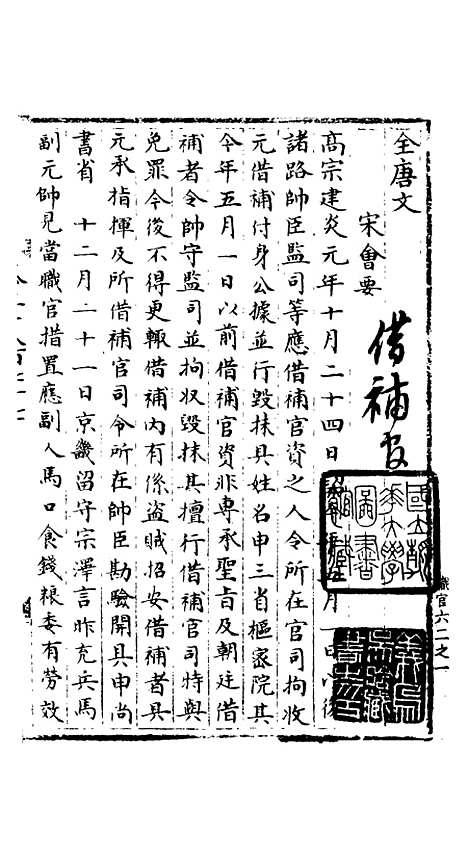 全唐文
宋會要
借補官
高宗建炎元年十月二十四日詔五月一日以後
諸路帥臣監司等應借補官資之人令所在官司拘收
元借補付身公據並行毀抹具姓名申三省樞密院其
今年五月一日以前借補官資非專承聖旨及朝廷借
補者令帥守監司並拘收毀抹其擅行借補官司特與
免罪今後不得更輒借補內有係盗賊招安借補者具
元承指揮及所借補官司令所在帥臣勘驗開具申尚
書省 十二月二十一日京畿留守宗澤言昨充兵馬
副元帥見當職官措置應副人馬口食錢糧委有勞效
職官六二之一